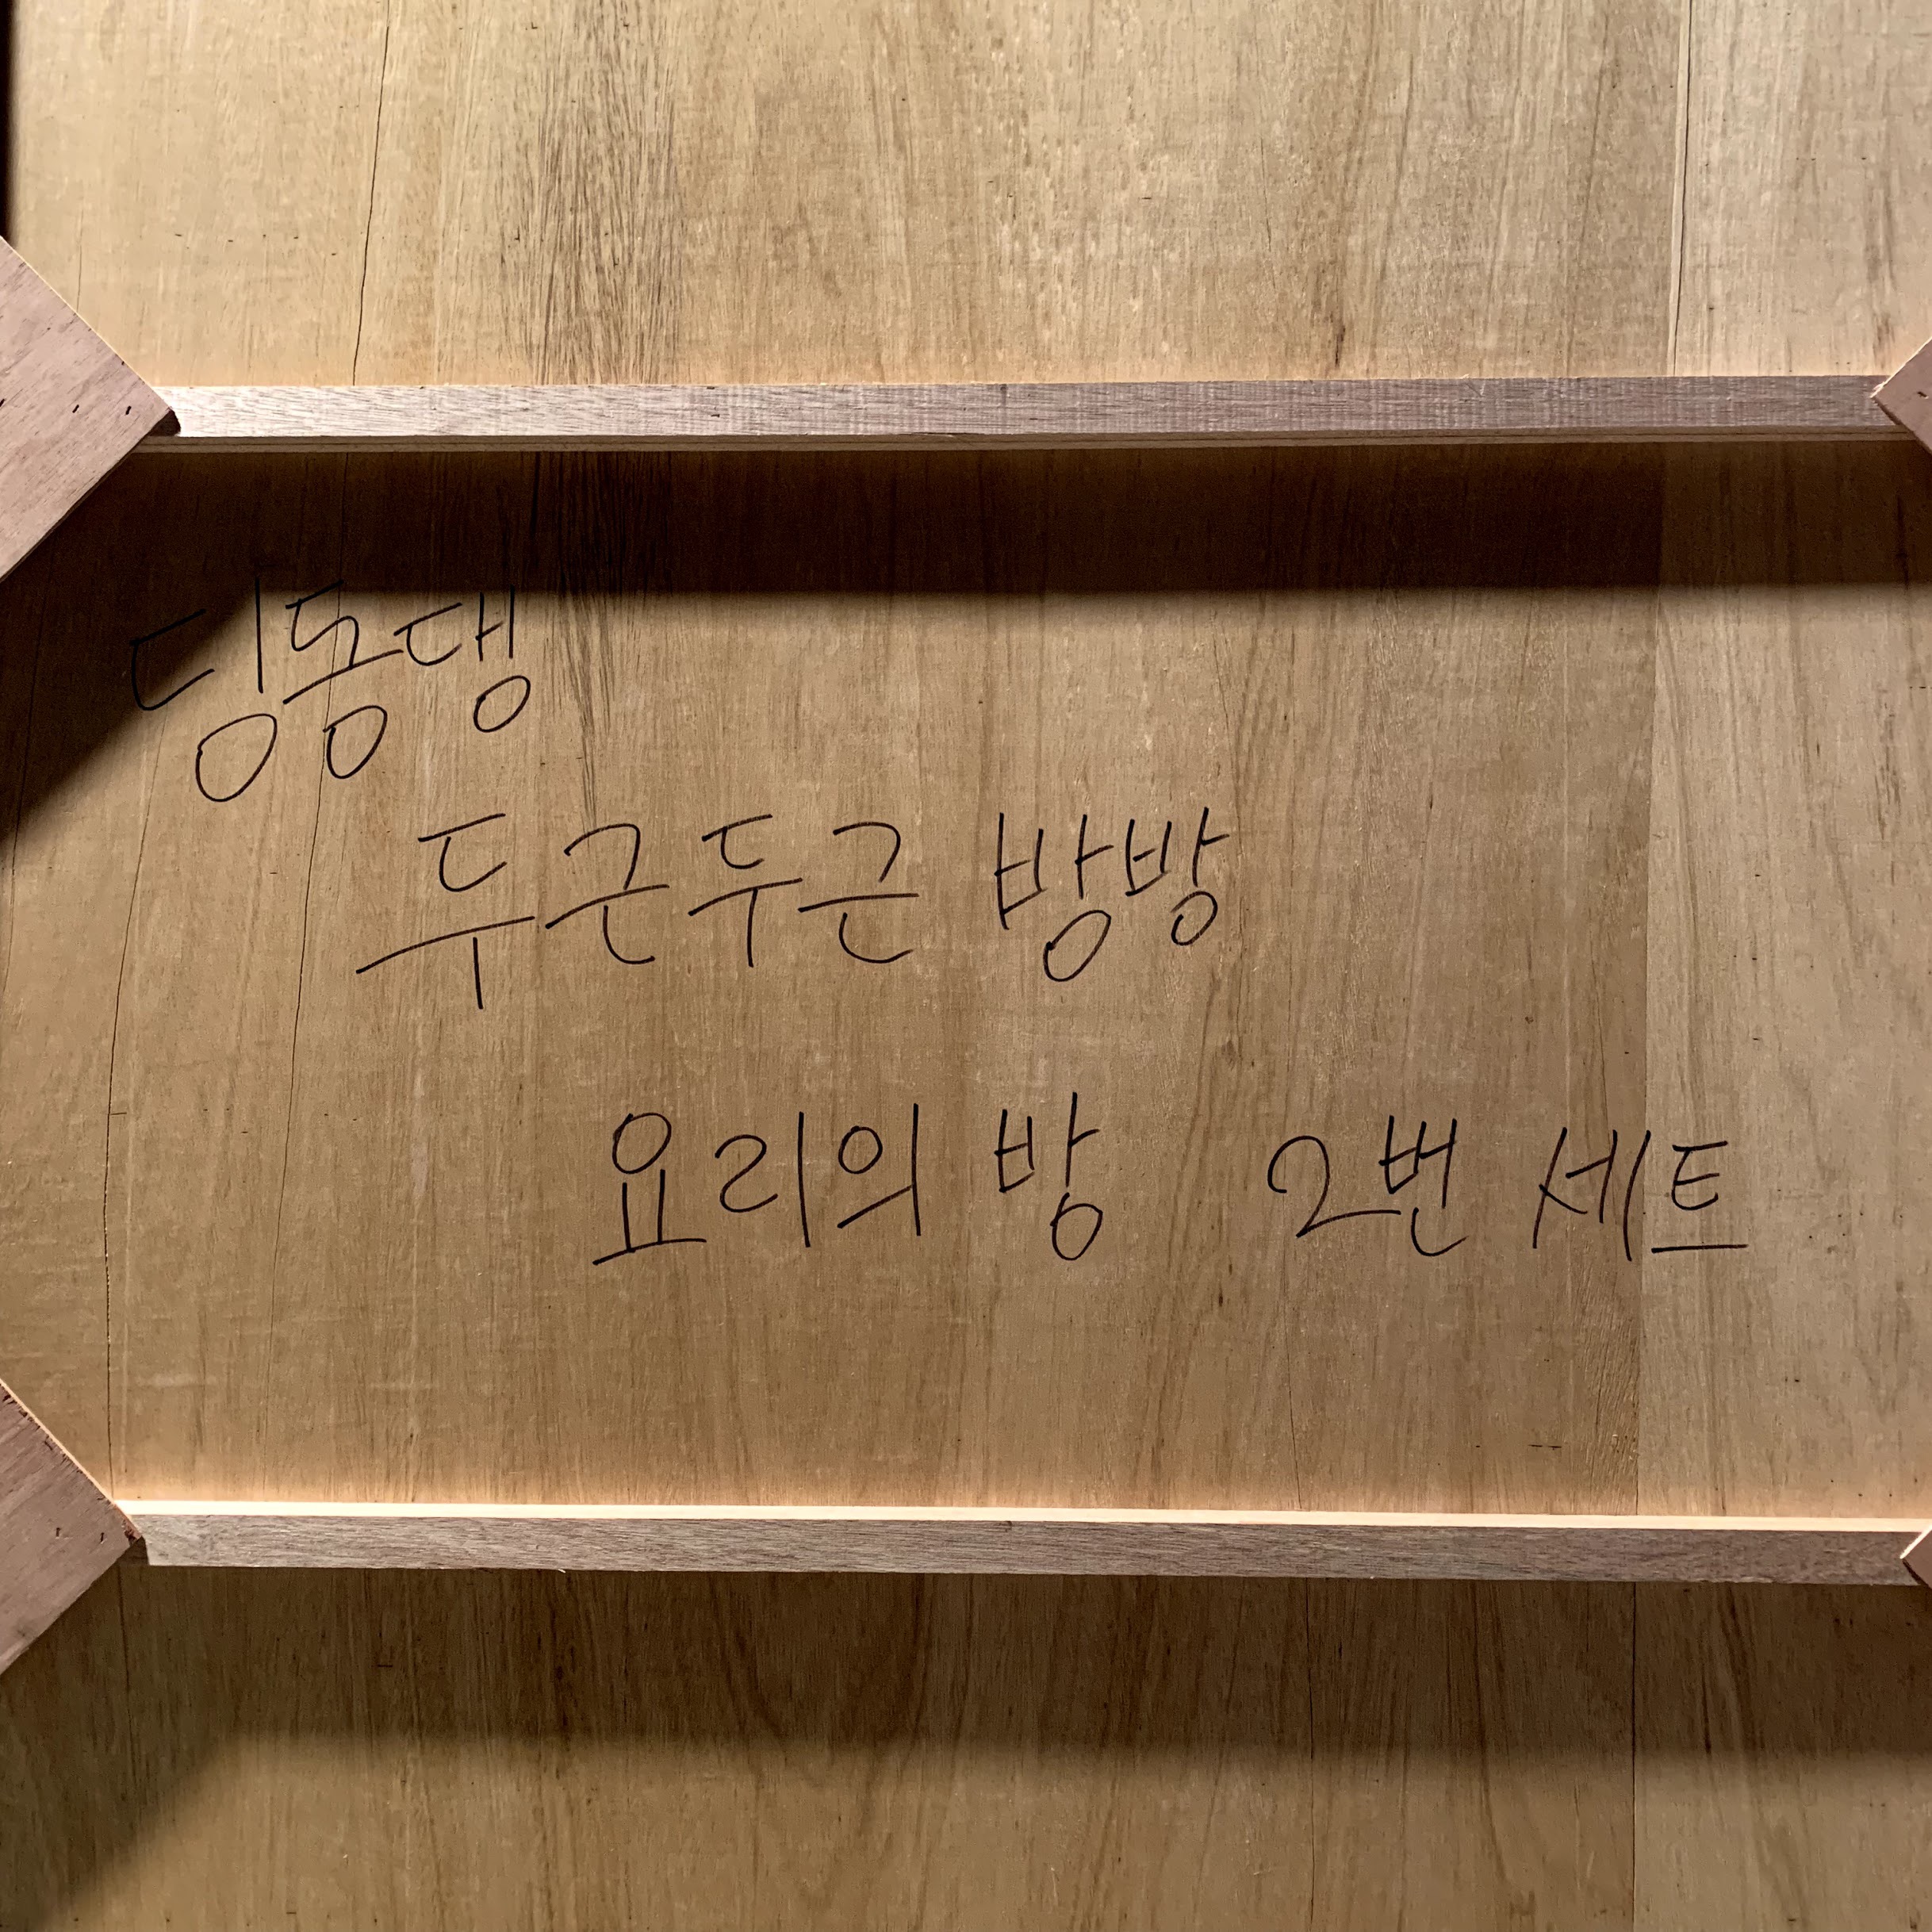 딩동댕
두근두근 방방
요리의 방 2번 세트